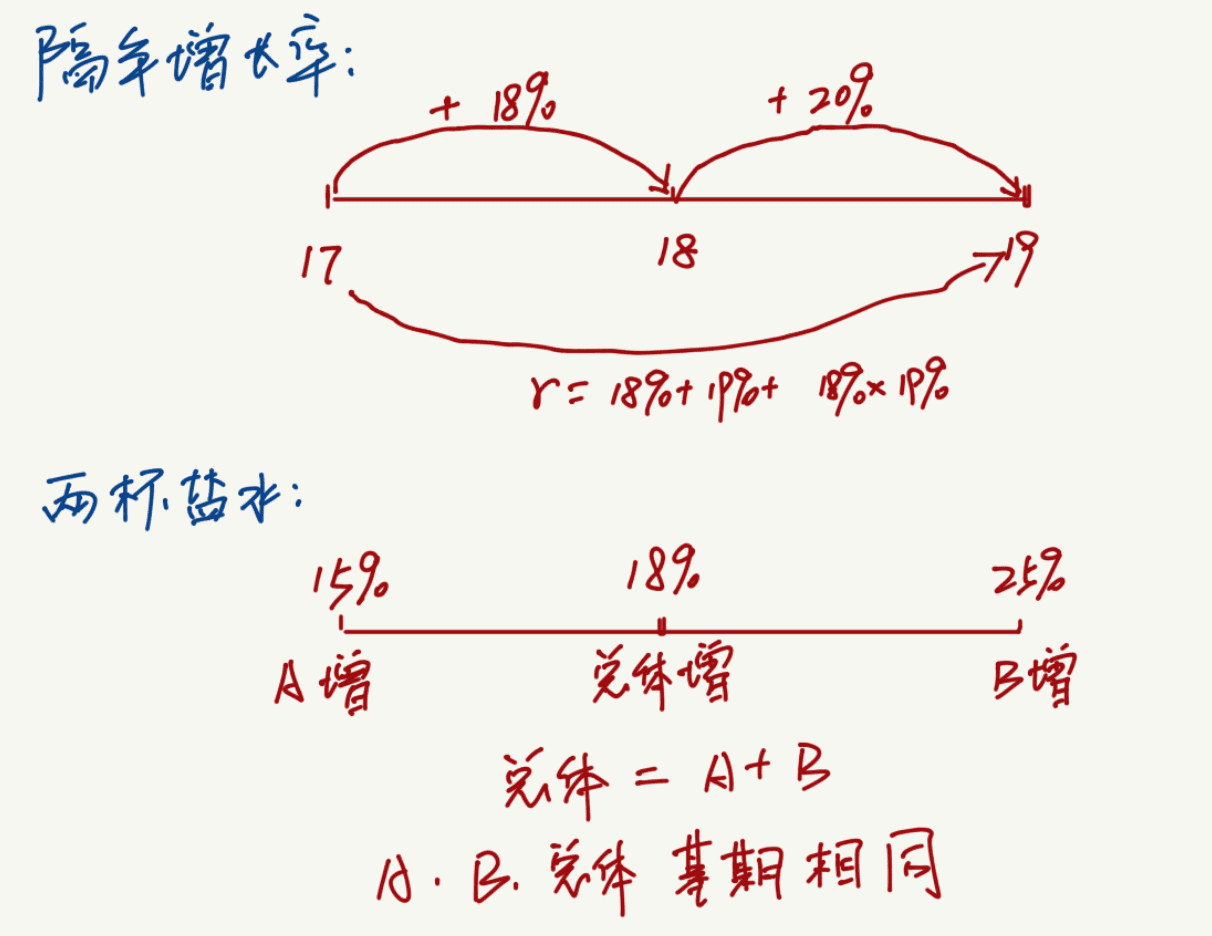 隔年增长率:
+ 18% + 20%
17 18 19
r = 18% + 19% + 18% × 19%
两杯盐水:
15% 18% 25%
A增 总体增 B增
总体 = A + B
A. B. 总体 基期相同